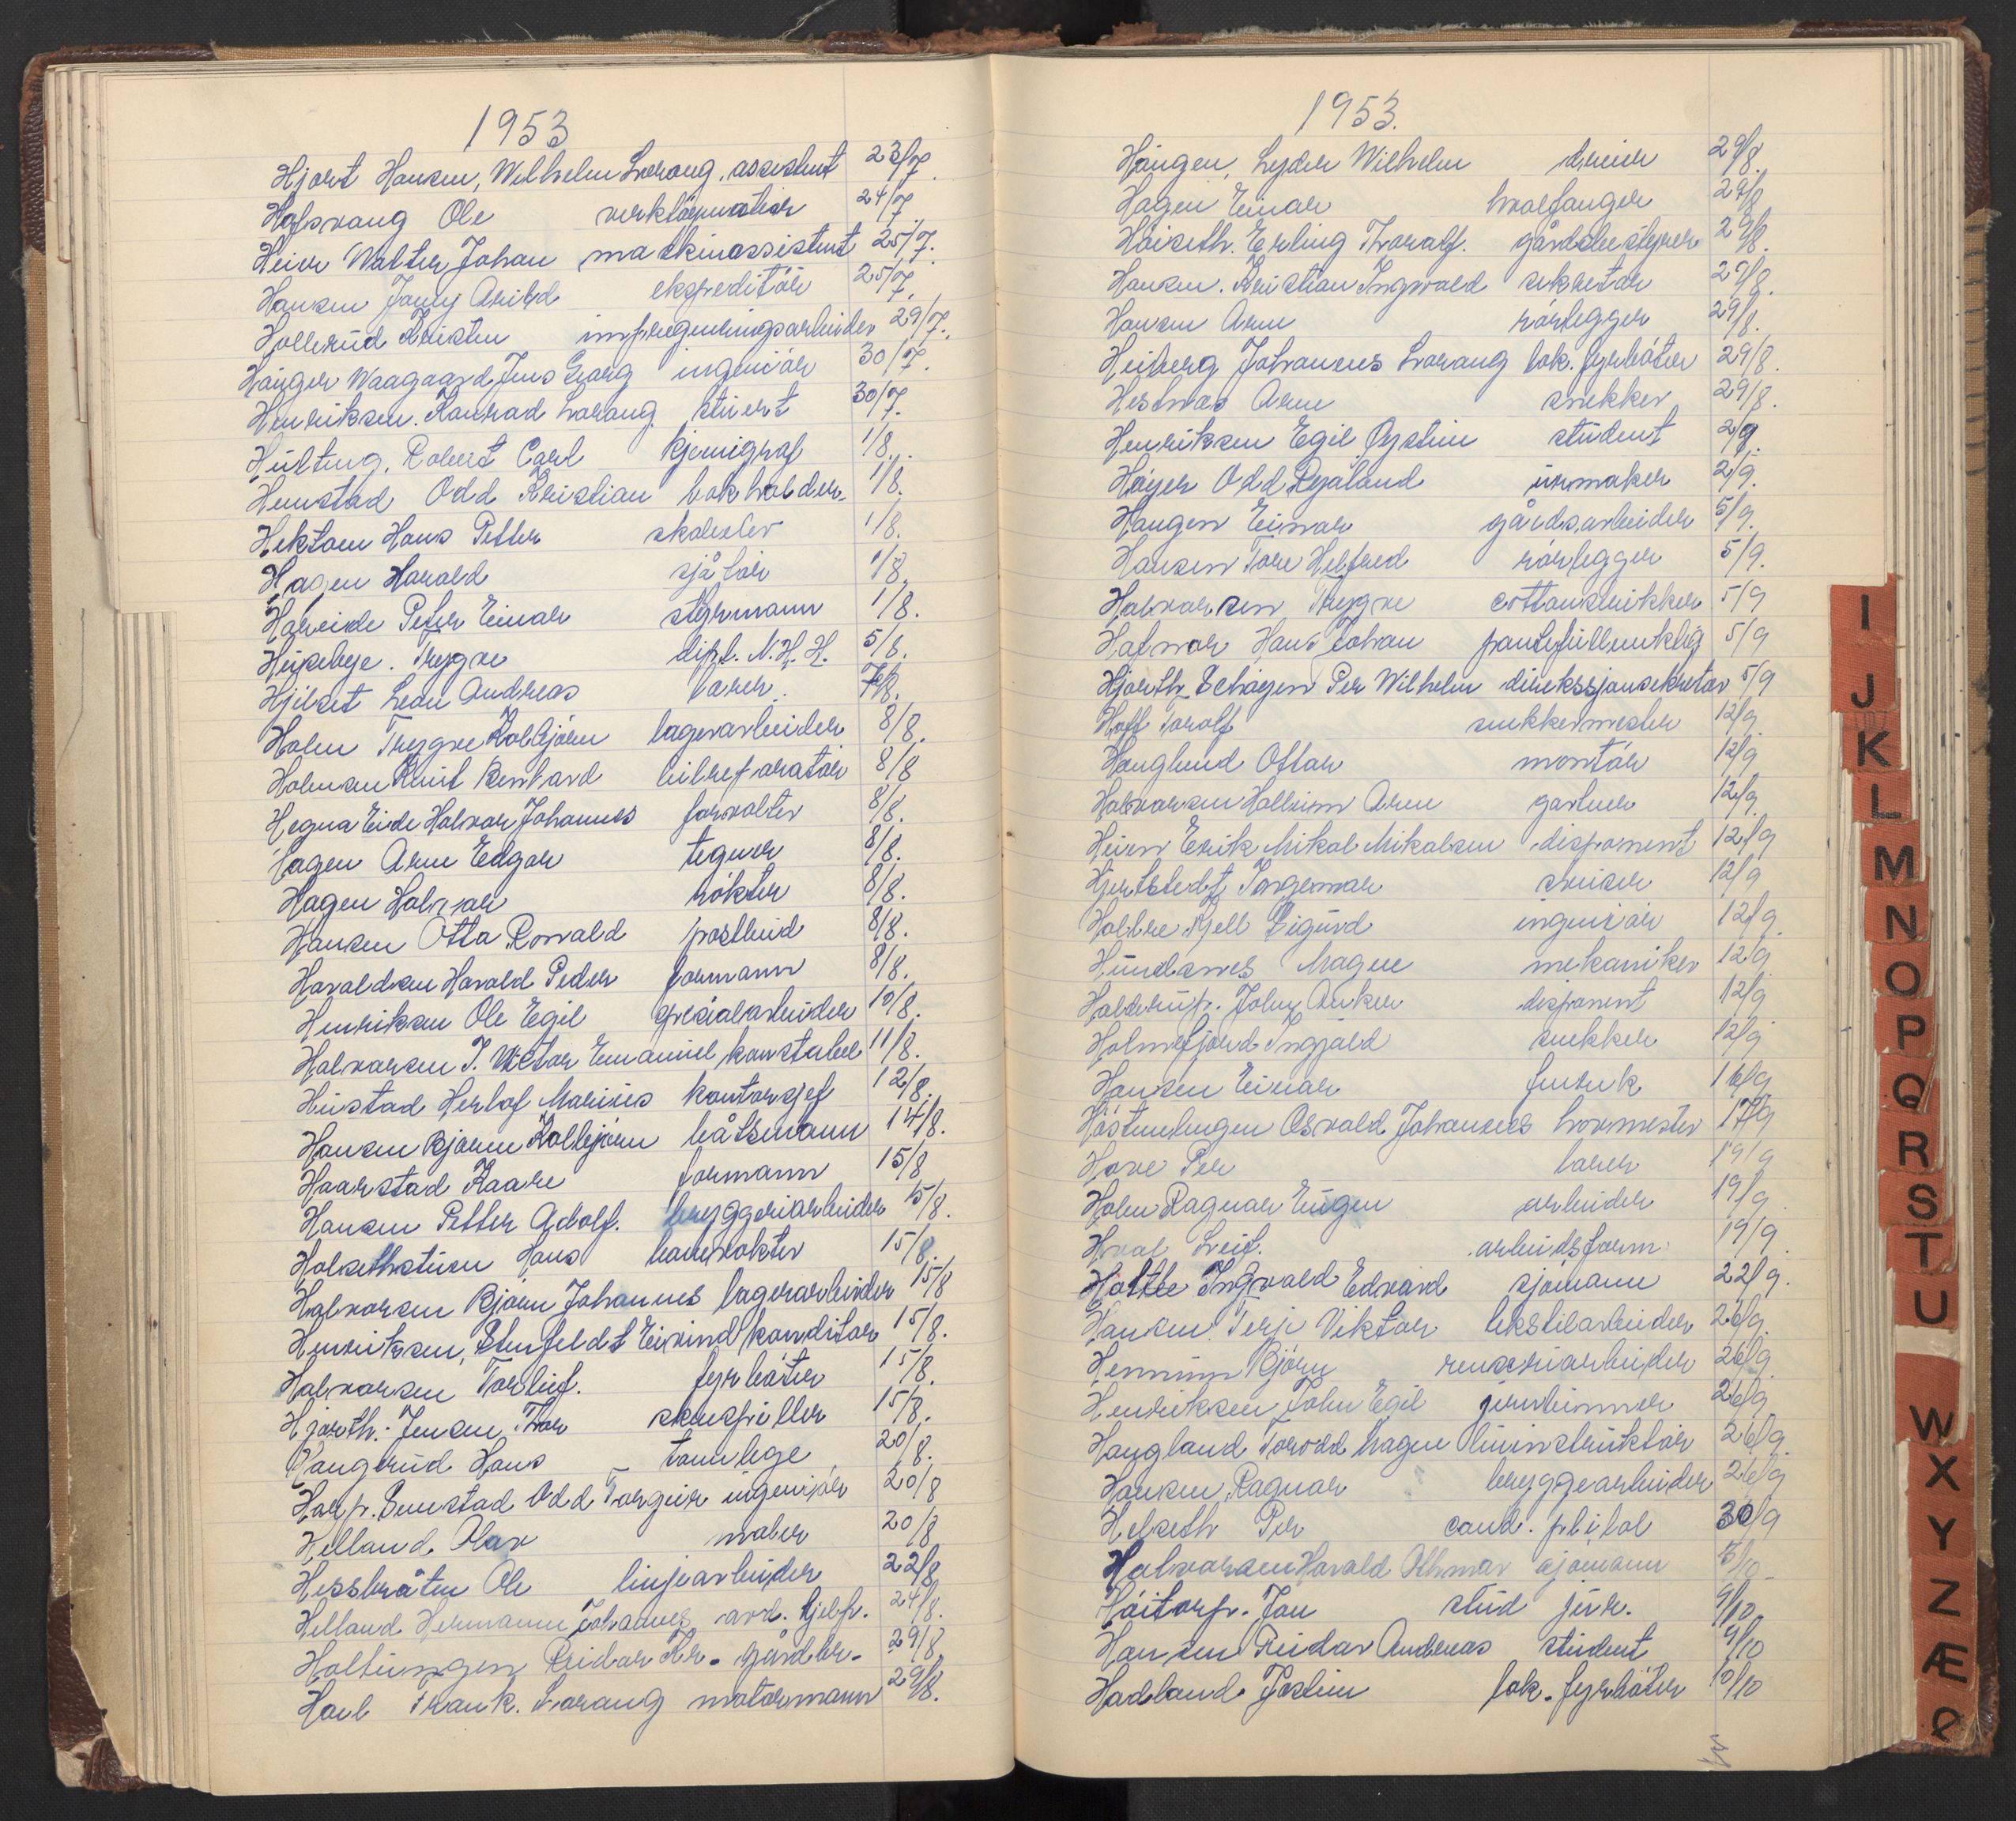 1953
Hjort Hansen, Wilhelm Lorang. assistent 23/7.
Hofsvang Ole verktøymakar 24/7
Heier Walter Johan maskinassistent 25/7.
Hansen Jonny Arild ekspeditør 25/7.
Hollerud Kristen impregneringsarbeider 29/7.
Haüger Waagaard Jens Georg ingeniør 30/7.
Henriksen. Konrad Lorang. stuert 30/7.
Hülting. Robert Carl kjemigraf 1/8.
Hemstad Odd Kristian bokholder. 1/8.
Hektoen Hans Petter skoleelev 1/8.
Hagen Harald sjåfør 1/8.
Hareide Peter Einar styrmann 1/8.
Heüsebye. Trygve dipl. N.H.H. 5/8.
Hjelset Leon Andreas lærer. 7/8.
Holm Trygve Kolbjørn lagerarbeider 8/8.
Holmsen Knut Bernhard bilreparatør 8/8
Hegna Eide Halvor Johannes forvalter 8/8.
Hagen Arne Edgar tegner 8/8.
Hagen Halvar røkter 8/8.
Hansen Otto Ronald postbud 8/8.
Haraldsen Harald Peder formann 8/8.
Henriksen Ole Egil spesialarbeider 10/8.
Halvorsen T. Victor Emanuel konstabel 11/8.
Hustad Herlof Marius kontorsjef 12/8.
Hansen Bjørn Kolbjørn båtsmann 14/8.
Haarstad Kaare formann 15/8
Hansen Petter Adolf. bryggeriarbeider 15/8.
Holsethstuen Hans banevokter 15/8.
Halvorsen Bjørn Johannes lagerarbeider 15/8
Henriksen, Stenfeldt Eivind konditor 15/8.
Halvorsen Torleif. fyrbøter 15/8.
Hjorth-Jensen Thor skuespiller 15/8.
Haugerud Hans tannlege 20/8.
Harp. Semstad Odd Torgeir ingeniør 20/8
Helland Olav maler 20/8
Hessbråten Ole linjearbeider 22/8
Helland Hermann Johannes avd. hjelp. 24/8.
Holtungen Reidar Kr. gårdbr. 29/8
Hoel Frank. Lorang motormann 29/8.
1953.
Haugen, Lyder Wilhelm dreier 29/8.
Hagen Einar hvalfanger 29/8
Høiseth. Erling Thoralf. gårdsbestyrer 29/8.
Hansen. Kristian Ingvald sekretær 29/8.
Hansen Arne rørlegger 29/8.
Heiberg Johannes Lorang lok. fyrbøter 29/8.
Hestnæs Arne snekker 29/8.
Henriksen Egil Øystein student 2/9.
Høyer Odd Rjaland urmaker 2/9.
Haugen Einar gårdsarbeider 5/9.
Hansen Tore Helfred rørlegger 5/9.
Halvorsen Trygve ottomanikker 5/9
Hafnor Hans Johan pantefullmektig 5/9
Hjorth-Schøyen Per Wilhelm direksjonssekretær 5/9
Hoff Torolf snekkermester 12/9.
Hauglund Ottar montør 12/9
Halvorsen Hallheim Arne gartner 12/9.
Heien Erik Mikal Mikalsen disponent 12/9
Hjertstedt Ingemar sveiser 12/9
Holtre Kjell Sigurd ingeniør 12/9.
Hundsnes Magne mekaniker 12/9
Halderup. John Anker disponent 12/9
Holmefjord Ingjald snekker 12/9
Hansen Einar furuk 16/9
Høstmelingen Osvald Johannes hovmester 17/9
Hove Per lærer 19/9
Holm Ragnar Eugen arbeider 19/9.
Hval Leif. arbeidsform. 19/9.
Holtte Ingvald Edvard sjømann 22/9.
Hansen. Terje Viktor tekstilarbeider 26/9.
Hennum Bjørn renseriarbeider 26/9
Henriksen John Egil jernbinner 26/9
Haugland Torodd Magne linjeinstruktør 26/9.
Hansen Ragnar bryggearbeider 26/9
Helseth Per cand. philol 30/9
Halvorsen Harald Othmar sjømann 5/10
Høitorp. Jan stud jur. 9/10
Hansen Reidar Andreas student 9/10
Hadland Jostein lok. fyrbøter 10/10
I
J
K
L
M
N
O
P
Q
R
S
T
U
W
X
Y
Z
Æ
Ø